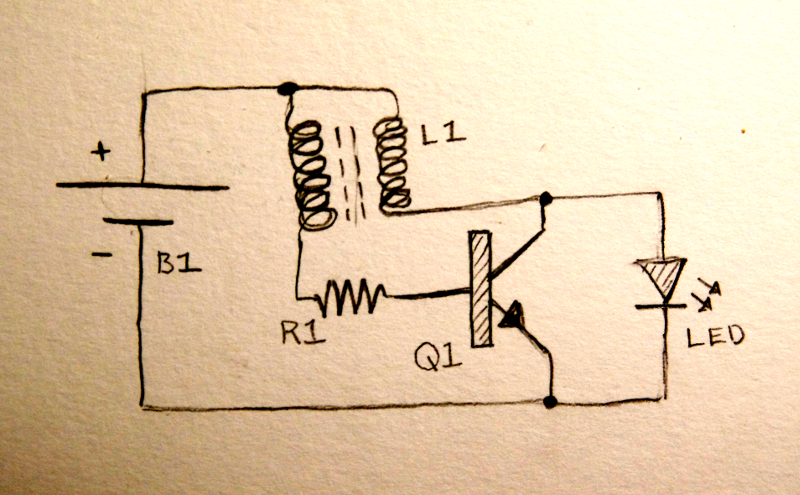 +
L1
-
B1
R1
Q1
LED